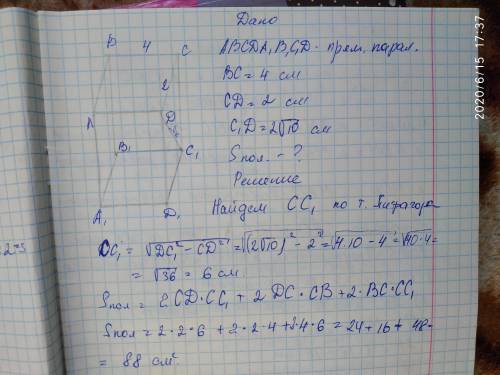 Дано
ABCDA₁B₁C₁D₁ - прям. парал.
BC = 4 см
CD = 2 см
C₁D = 2√10 см
Sпол. - ?
Решение
Найдем CC₁ по т. Пифагора
CC₁ = √DC₁² - CD² = √(2√10)² - 2² = √4.10 - 4 = √40-4 =
= √36 = 6 см
Sпол = 2.CD.CC₁ + 2 DC.CB + 2.BC.CC₁
Sпол = 2.2.6 + 2.2.4 + 2.4.6 = 24 + 16 + 48 =
= 88 см²
B 4 C
2
A D
B₁ C₁
A₁ D₁
2020/6/15 17:37